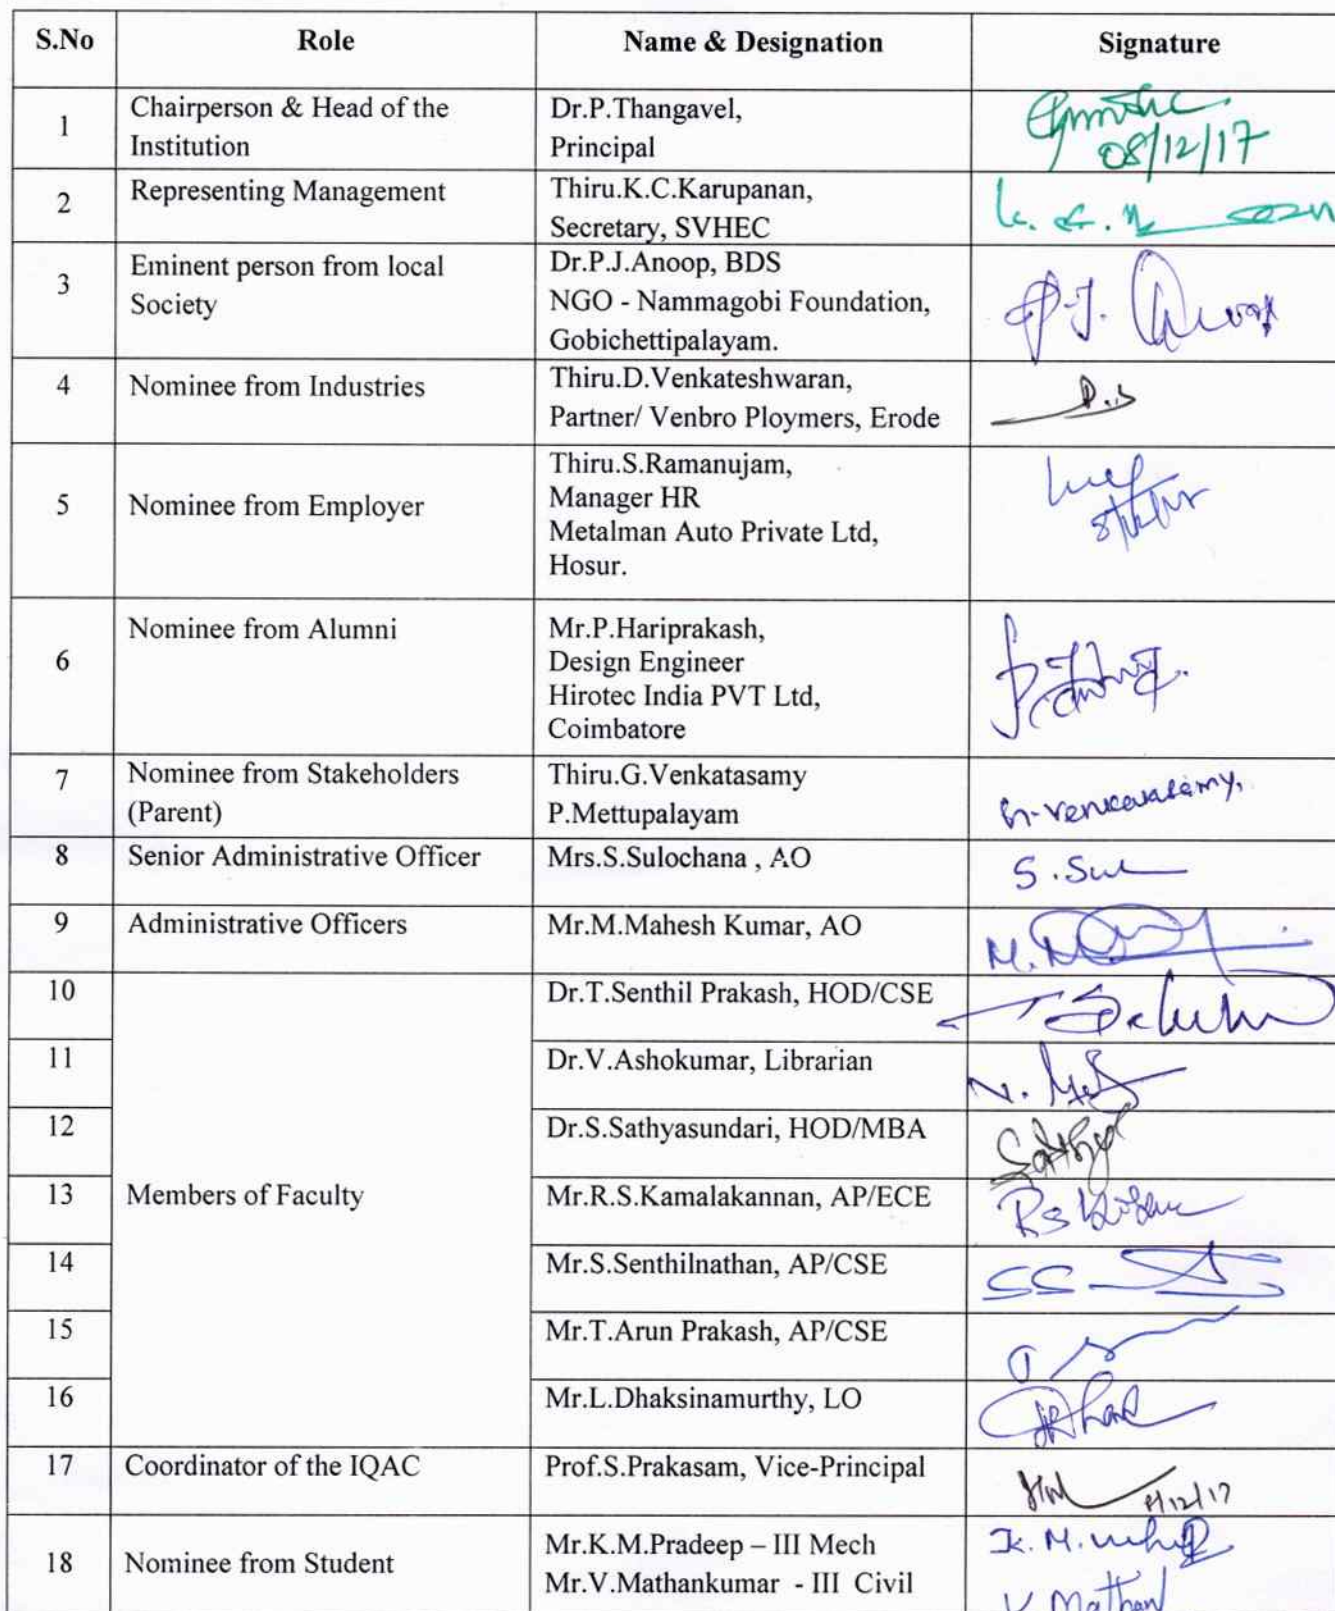 S.No Role Name & Designation Signature
1 Chairperson & Head of the Institution Dr.P.Thangavel, Principal 08/12/17
2 Representing Management Thiru.K.C.Karupanan, Secretary, SVHEC
3 Eminent person from local Society Dr.P.J.Anoop, BDS NGO - Nammagobi Foundation, Gobichettipalayam. P.J.
4 Nominee from Industries Thiru.D.Venkateshwaran, Partner/ Venbro Ploymers, Erode
5 Nominee from Employer Thiru.S.Ramanujam, Manager HR Metalman Auto Private Ltd, Hosur.
6 Nominee from Alumni Mr.P.Hariprakash, Design Engineer Hirotec India PVT Ltd, Coimbatore
7 Nominee from Stakeholders (Parent) Thiru.G.Venkatasamy P.Mettupalayam G.Venkatasamy,
8 Senior Administrative Officer Mrs.S.Sulochana , AO S.Sul
9 Administrative Officers Mr.M.Mahesh Kumar, AO
10 Dr.T.Senthil Prakash, HOD/CSE
11 Dr.V.Ashokumar, Librarian
12 Dr.S.Sathyasundari, HOD/MBA
13 Members of Faculty Mr.R.S.Kamalakannan, AP/ECE
14 Mr.S.Senthilnathan, AP/CSE
15 Mr.T.Arun Prakash, AP/CSE
16 Mr.L.Dhaksinamurthy, LO
17 Coordinator of the IQAC Prof.S.Prakasam, Vice-Principal 8/12/17
18 Nominee from Student Mr.K.M.Pradeep – III Mech K.M.
Mr.V.Mathankumar - III Civil V Mathan